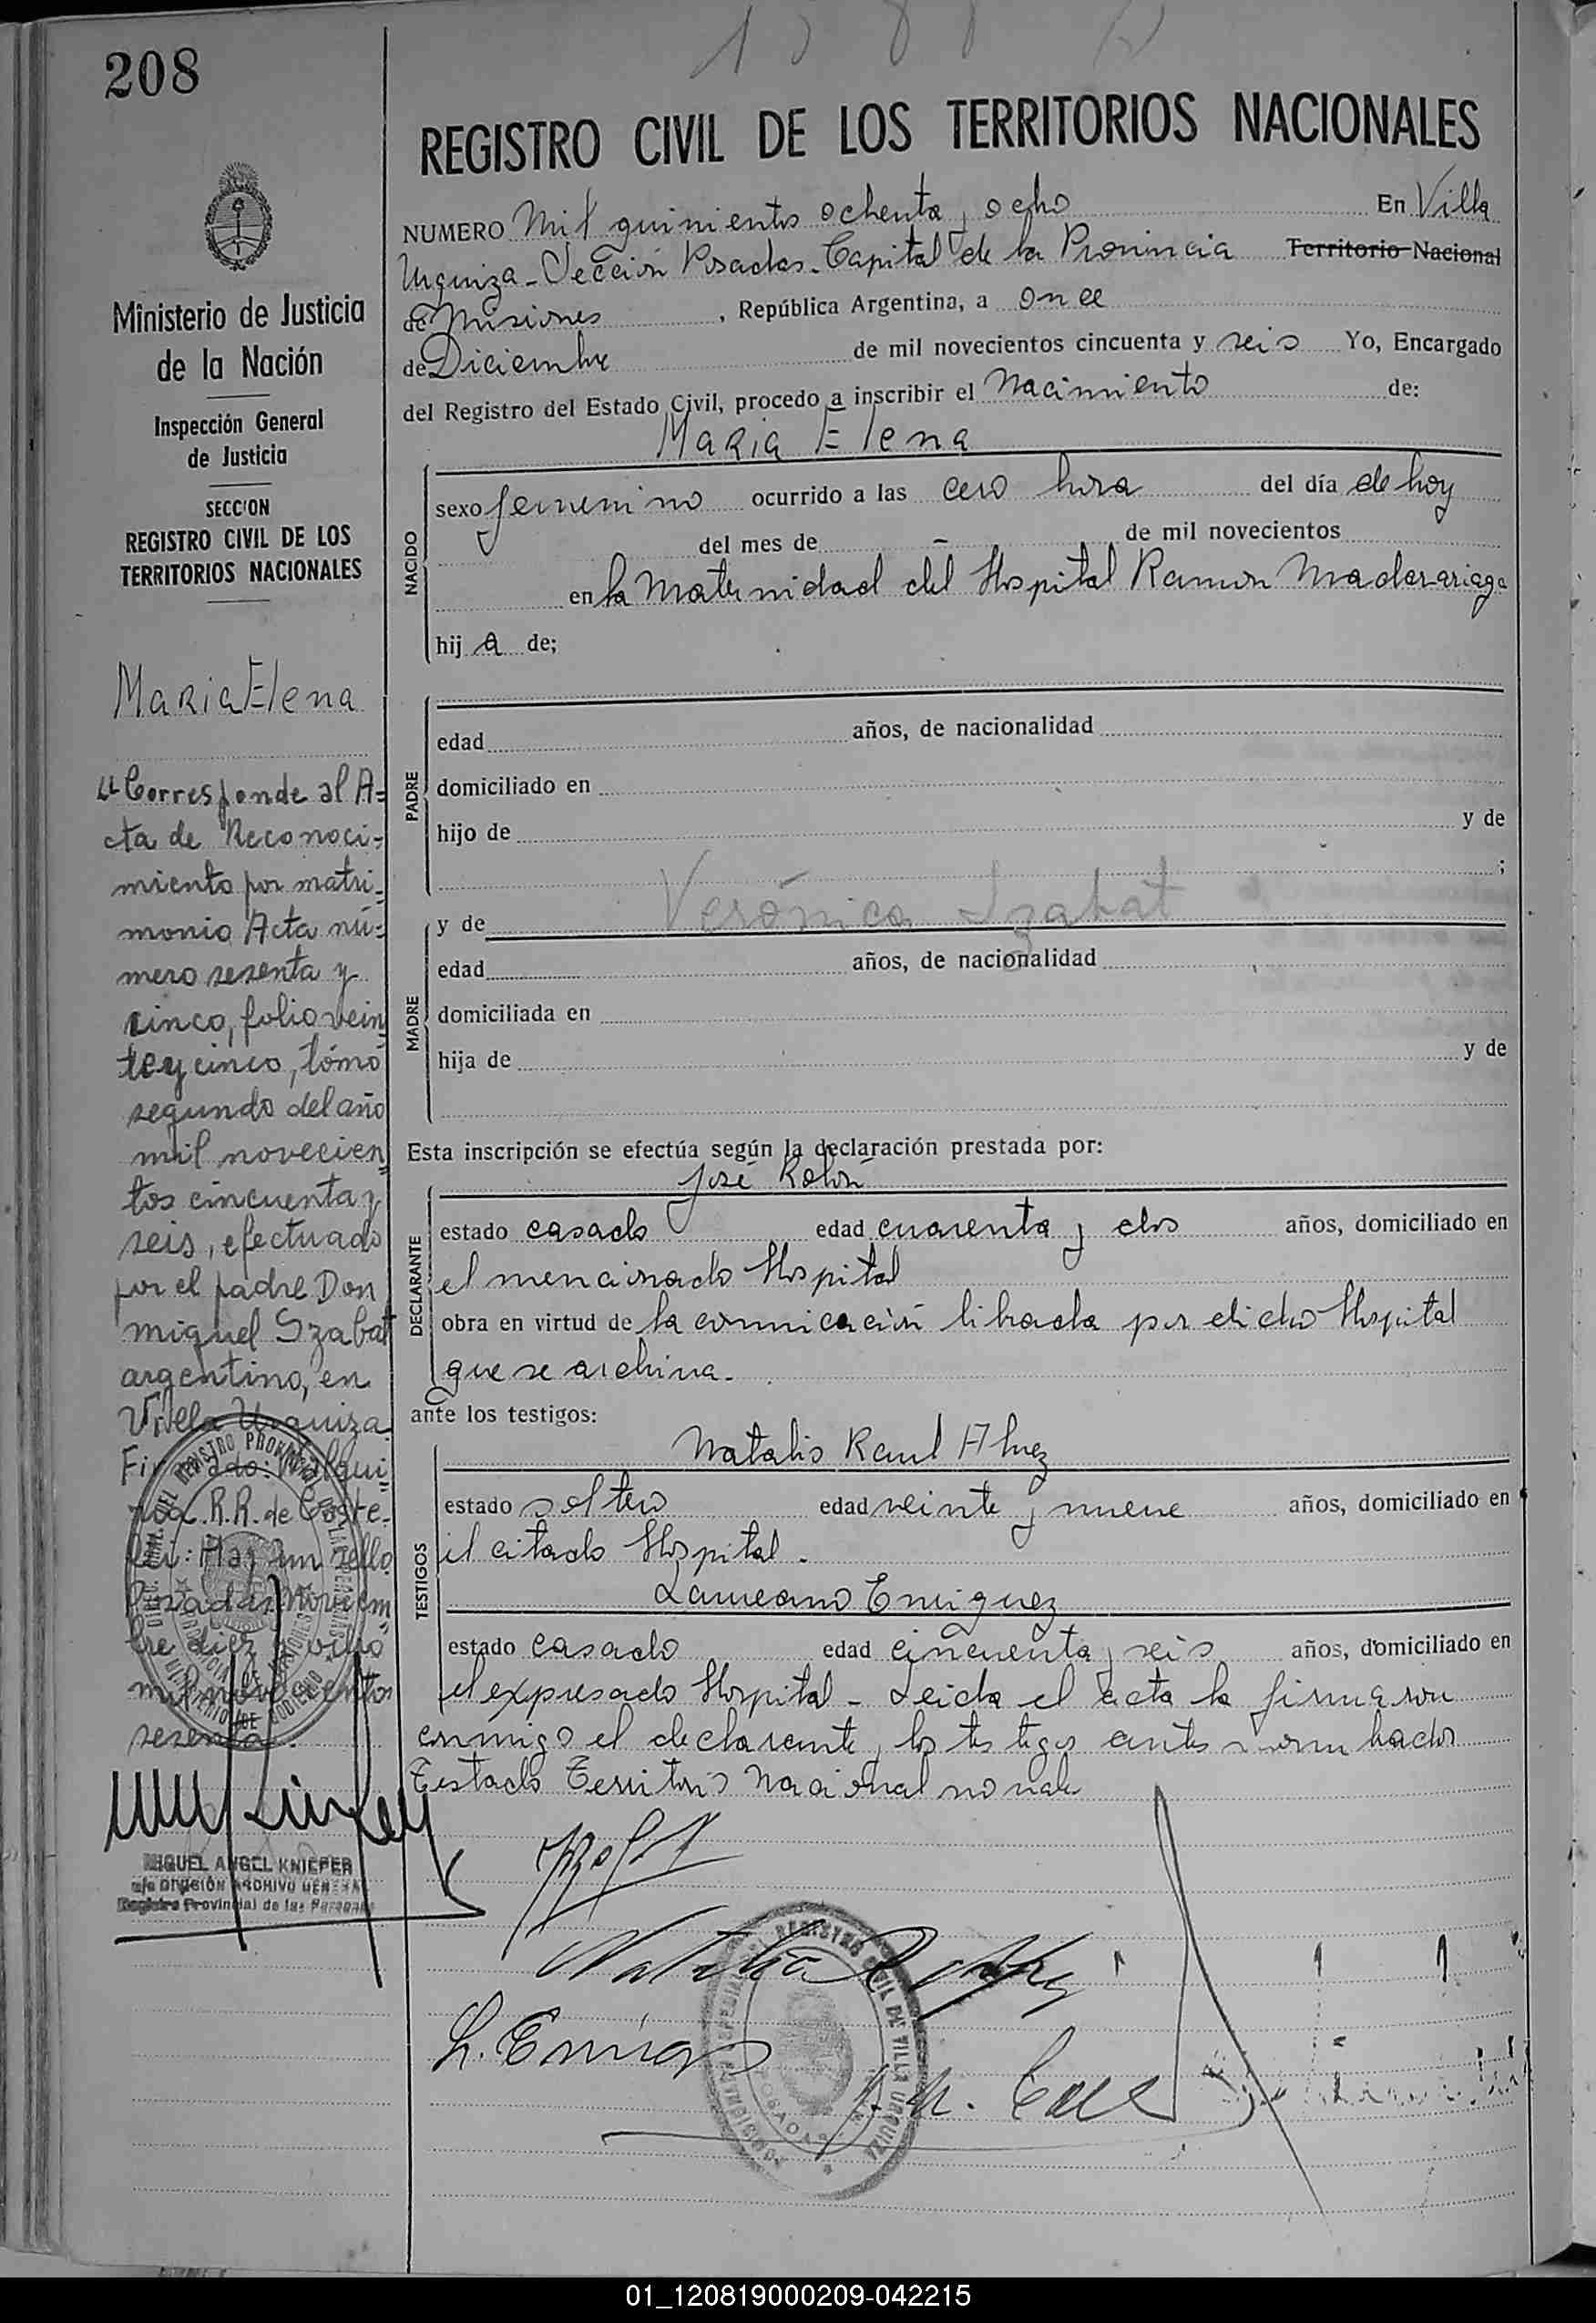 208
1588
REGISTRO CIVIL DE LOS TERRITORIOS NACIONALES
NUMERO Mil quinientos ochenta y ocho En Villa
Urquiza - Sección Posadas - Capital de la Provincia Territorio Nacional
de Misiones, República Argentina, a once
de Diciembre de mil novecientos cincuenta y seis Yo, Encargado
del Registro del Estado Civil, procedo a inscribir el Nacimiento de:
Maria Elena
NACIDO
sexo femenino ocurrido a las cero hora del día de hoy
del mes de - de mil novecientos
en la Maternidad del Hospital Ramon Madarariaga
hij a de;
PADRE
edad años, de nacionalidad
domiciliado en
hijo de y de
;
MADRE
y de Verónica Szabat
edad años, de nacionalidad
domiciliada en
hija de y de
Esta inscripción se efectúa según la declaración prestada por:
José Rolón
DECLARANTE
estado casado edad cuarenta y dos años, domiciliado en
el mencionado Hospital
obra en virtud de la comunicación librada por dicho Hospital
que se archiva.
ante los testigos:
TESTIGOS
Natalio Raul Alvez
estado soltero edad veinte y nueve años, domiciliado en
el citado Hospital.
Laureano Enriquez
estado casado edad cincuenta y seis años, domiciliado en
el expresado Hospital - Leida el acta la firmaron
conmigo el declarante y los testigos antes nombrados
Testado Territorio Nacional no vale
L. Enriq
REGISTRO CIVIL DE VILLA URQUIZA
POSADAS
Ministerio de Justicia
de la Nación
Inspección General
de Justicia
SECCION
REGISTRO CIVIL DE LOS
TERRITORIOS NACIONALES
Maria Elena
"Corresponde al A=
cta de Reconoci=
miento por matri=
monio Acta nú=
mero sesenta y
cinco, folio vein
te y cinco, tomo
segundo del año
mil novecien
tos cincuenta y
seis, efectuado
por el padre Don
Miguel Szabat
argentino, en
Villa Urquiza
R.R. de Coste-
Hay un sello
Posadas, Noviem
bre diez y ocho
mil novecientos
sesenta.
MIGUEL ANGEL KNIEPER
Jefe DIVISIÓN ARCHIVO GENERAL
Registro Provincial de las Personas
01_120819000209-042215